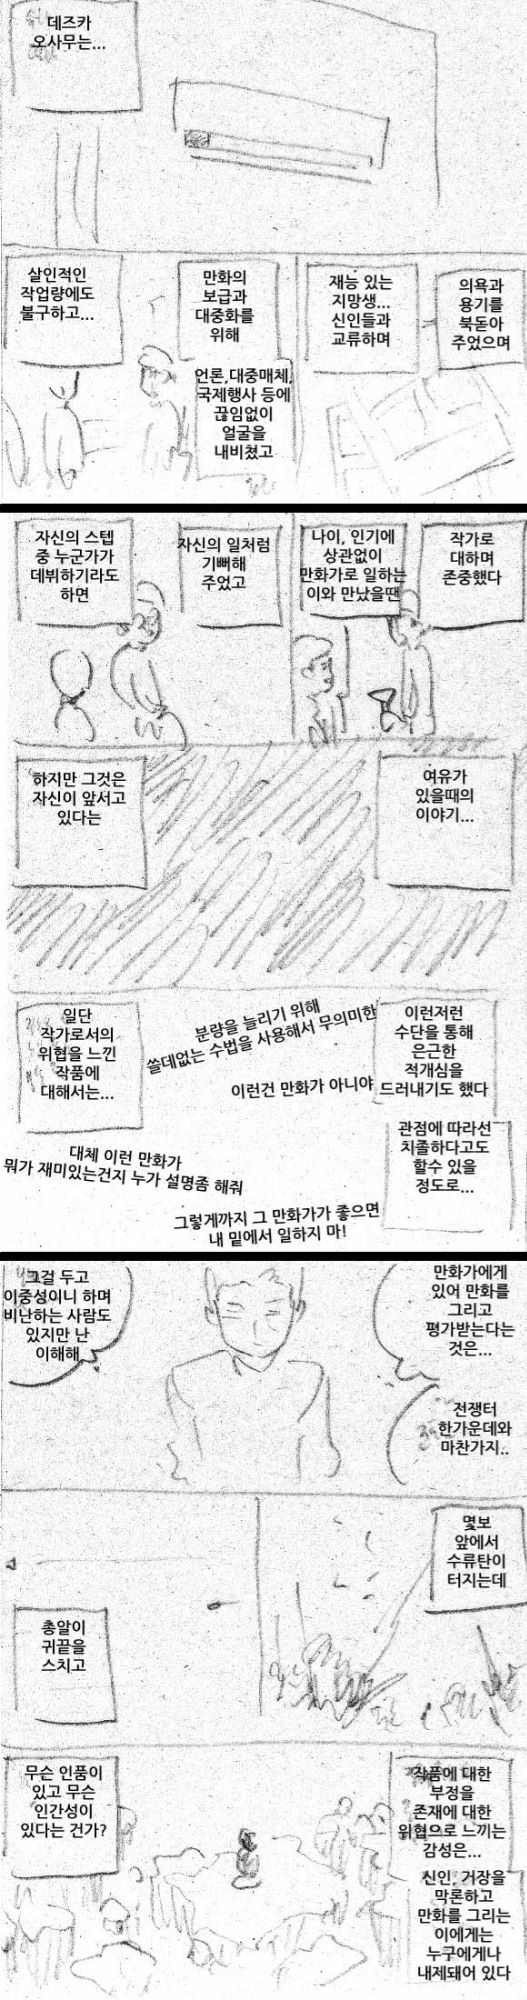 데즈카
오사무는...
살인적인
작업량에도
불구하고...
만화의
보급과
대중화를
위해
언론,대중매체,
국제행사 등에
끊임없이
얼굴을
내비쳤고
재능 있는
지망생...
신인들과
교류하며
의욕과
용기를
북돋아
주었으며
자신의 스텝
중 누군가가
데뷔하기라도
하면
자신의 일처럼
기뻐해
주었고
나이, 인기에
상관없이
만화가로 일하는
이와 만났을땐
작가로
대하며
존중했다
하지만 그것은
자신이 앞서고
있다는
여유가
있을때의
이야기...
일단
작가로서의
위협을 느낀
작품에
대해서는...
분량을 늘리기 위해
쓸데없는 수법을 사용해서 무의미한
이런건 만화가 아니야
대체 이런 만화가
뭐가 재미있는건지 누가 설명좀 해줘
그렇게까지 그 만화가가 좋으면
내 밑에서 일하지 마!
이런저런
수단을 통해
은근한
적개심을
드러내기도 했다
관점에 따라선
치졸하다고도
할수 있을
정도로...
그걸 두고
이중성이니 하며
비난하는 사람도
있지만 난
이해해
만화가에게
있어 만화를
그리고
평가받는다는
것은...
전쟁터
한가운데와
마찬가지..
총알이
귀끝을
스치고
몇보
앞에서
수류탄이
터지는데
무슨 인품이
있고 무슨
인간성이
있다는 건가?
작품에 대한
부정을
존재에 대한
위협으로 느끼는
감성은...
신인, 거장을
막론하고
만화를 그리는
이에게는
누구에게나
내제돼어 있다